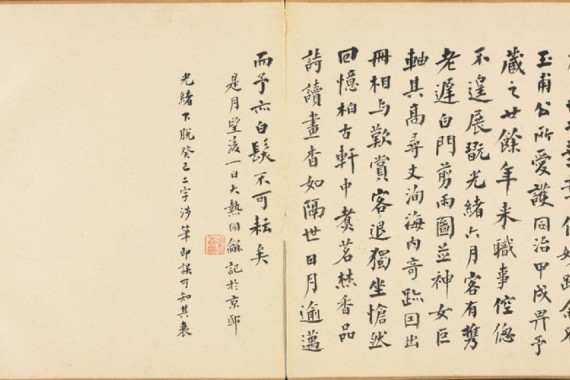 玉甫公所愛護同治甲戌畀予
藏之廿餘年来職事倥傯
不遑展翫光緒六月客有携
老遲白門剪雨圖並神女巨
軸其高尋丈洵海内奇跡因出
冊相与歎賞客退獨坐愴然
回憶柏古軒中煑茗香品
詩讀畫杳如隔世日月逾邁
而予亦白髮不可耘矣
是月望後一日大熱同龢記於京邸
光緒下脱癸巳二字涉筆即誤可知其衰